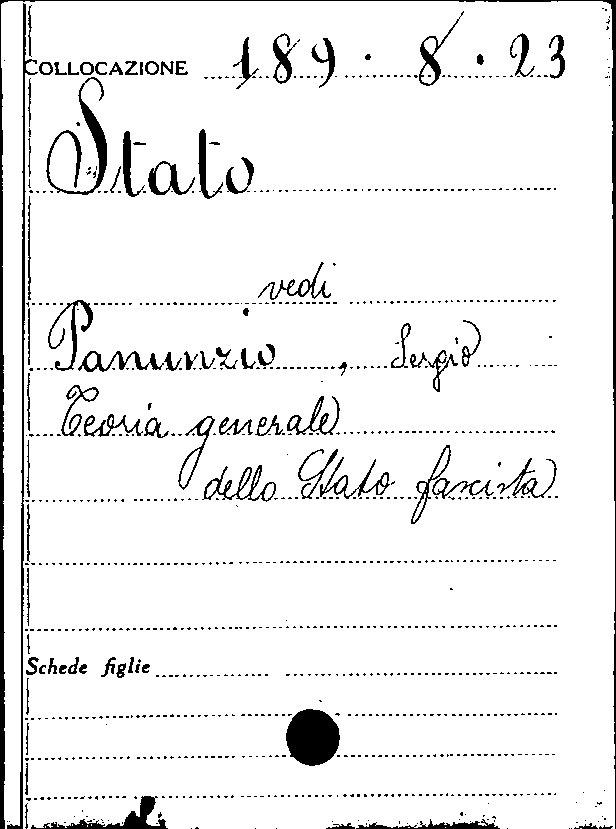 COLLOCAZIONE 189 · 8 · 23
Stato
vedi
Panunzio, Sergio
Teoria generale
dello Stato fascista
Schede figlie